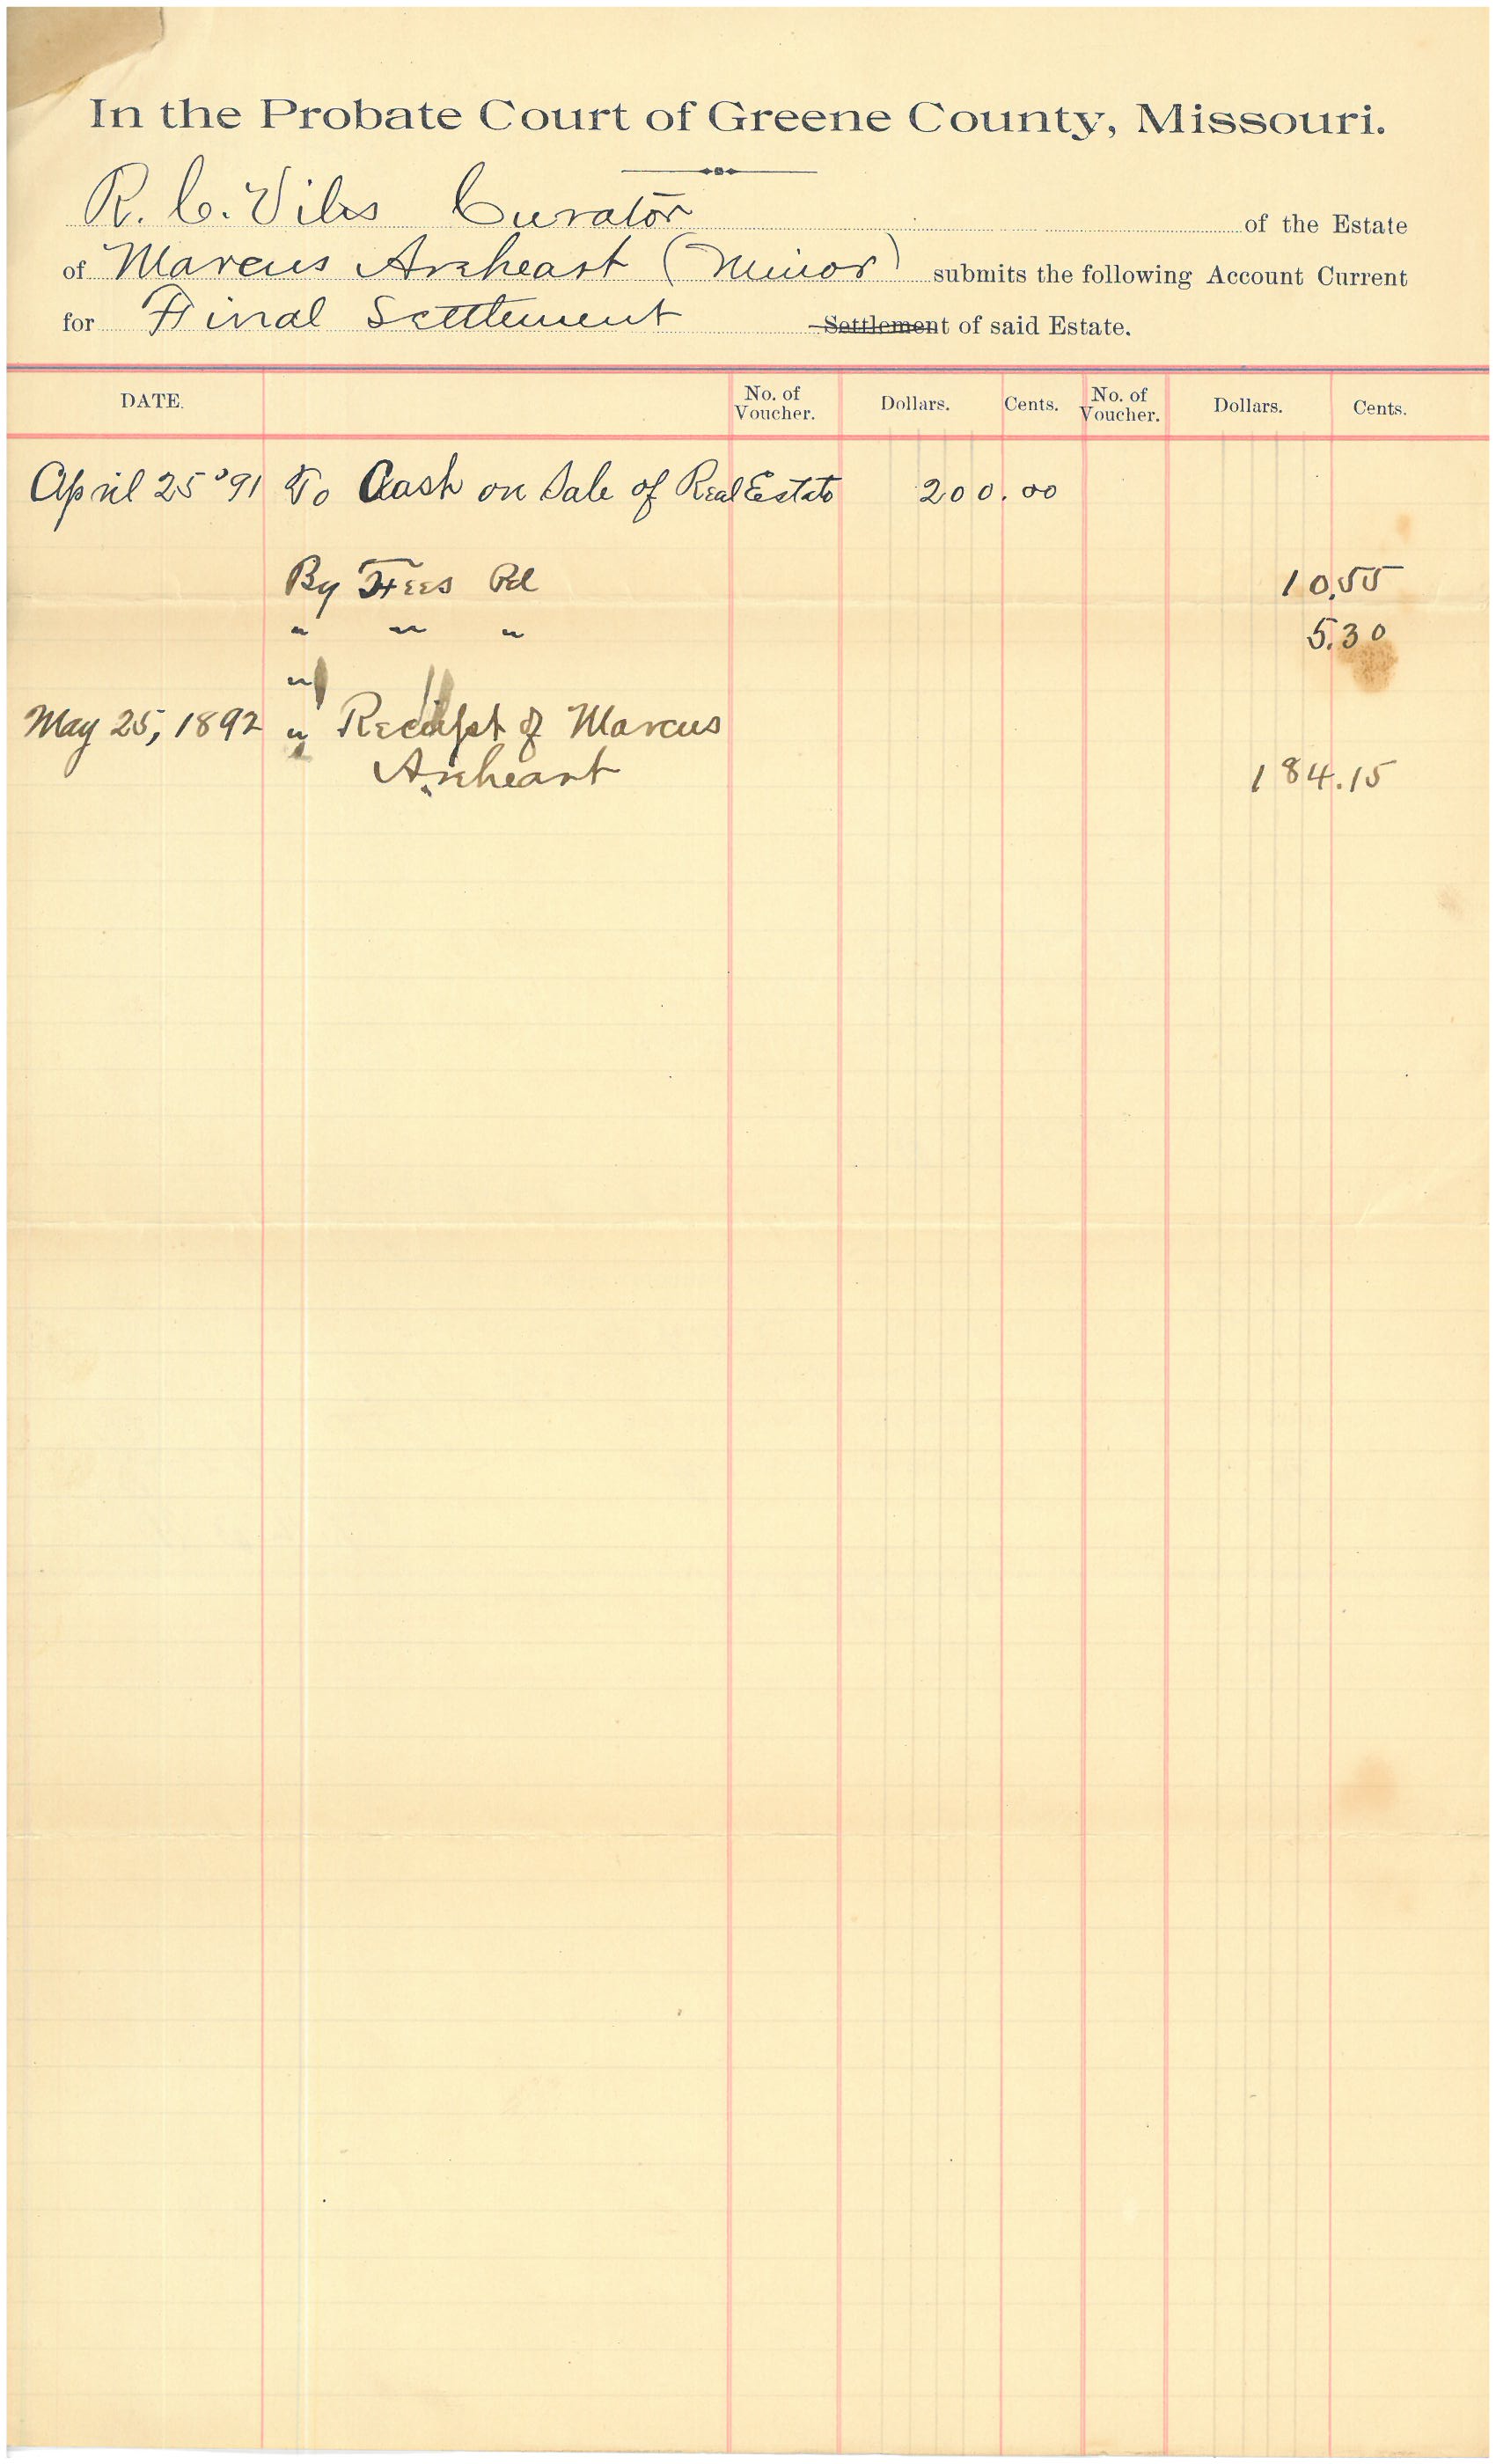 In the Probate Court of Greene County, Missouri.
R. C. Viles Curator of the Estate
of Marcus Areheart (Minor) submits the following Account Current
for Final Settlement Settlement of said Estate.
DATE. No. of Voucher. Dollars. Cents. No. of Voucher. Dollars. Cents.
April 25 '91 To Cash on Sale of Real Estate 200.00
By Fees Pd 10.55
" " " 5.30
"
May 25, 1892 " Receipt of Marcus
Areheart 184.15